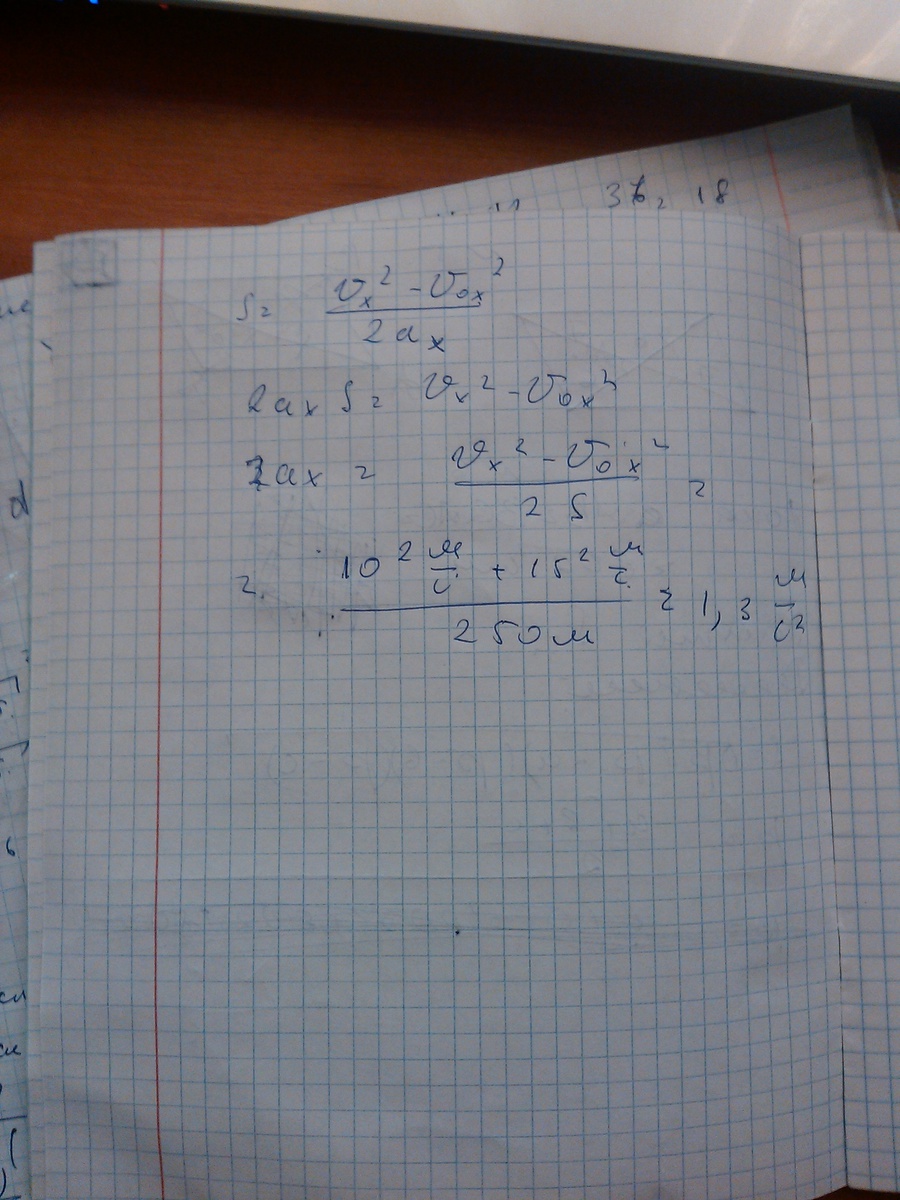 37, 18
S = (υₓ² - υ₀ₓ²) / 2aₓ
2aₓ S = υₓ² - υ₀ₓ²
aₓ = (υₓ² - υ₀ₓ²) / 2 S =
= (10² м/с + 15² м/с) / 250 м = 1,3 м/с²